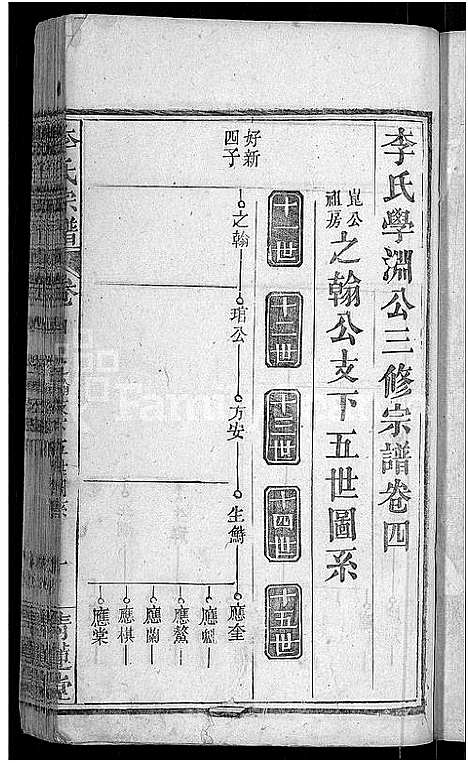 李氏學淵公三修宗譜卷四
崑公祖房
之翰公支下五世圖系
十一世
十二世
十三世
十四世
十五世
好新四子
之翰
琯公
方安
生鰣
應奎
應魁
應鰲
應蘭
應棋
應棠
李氏宗譜
卷四
青蓮堂